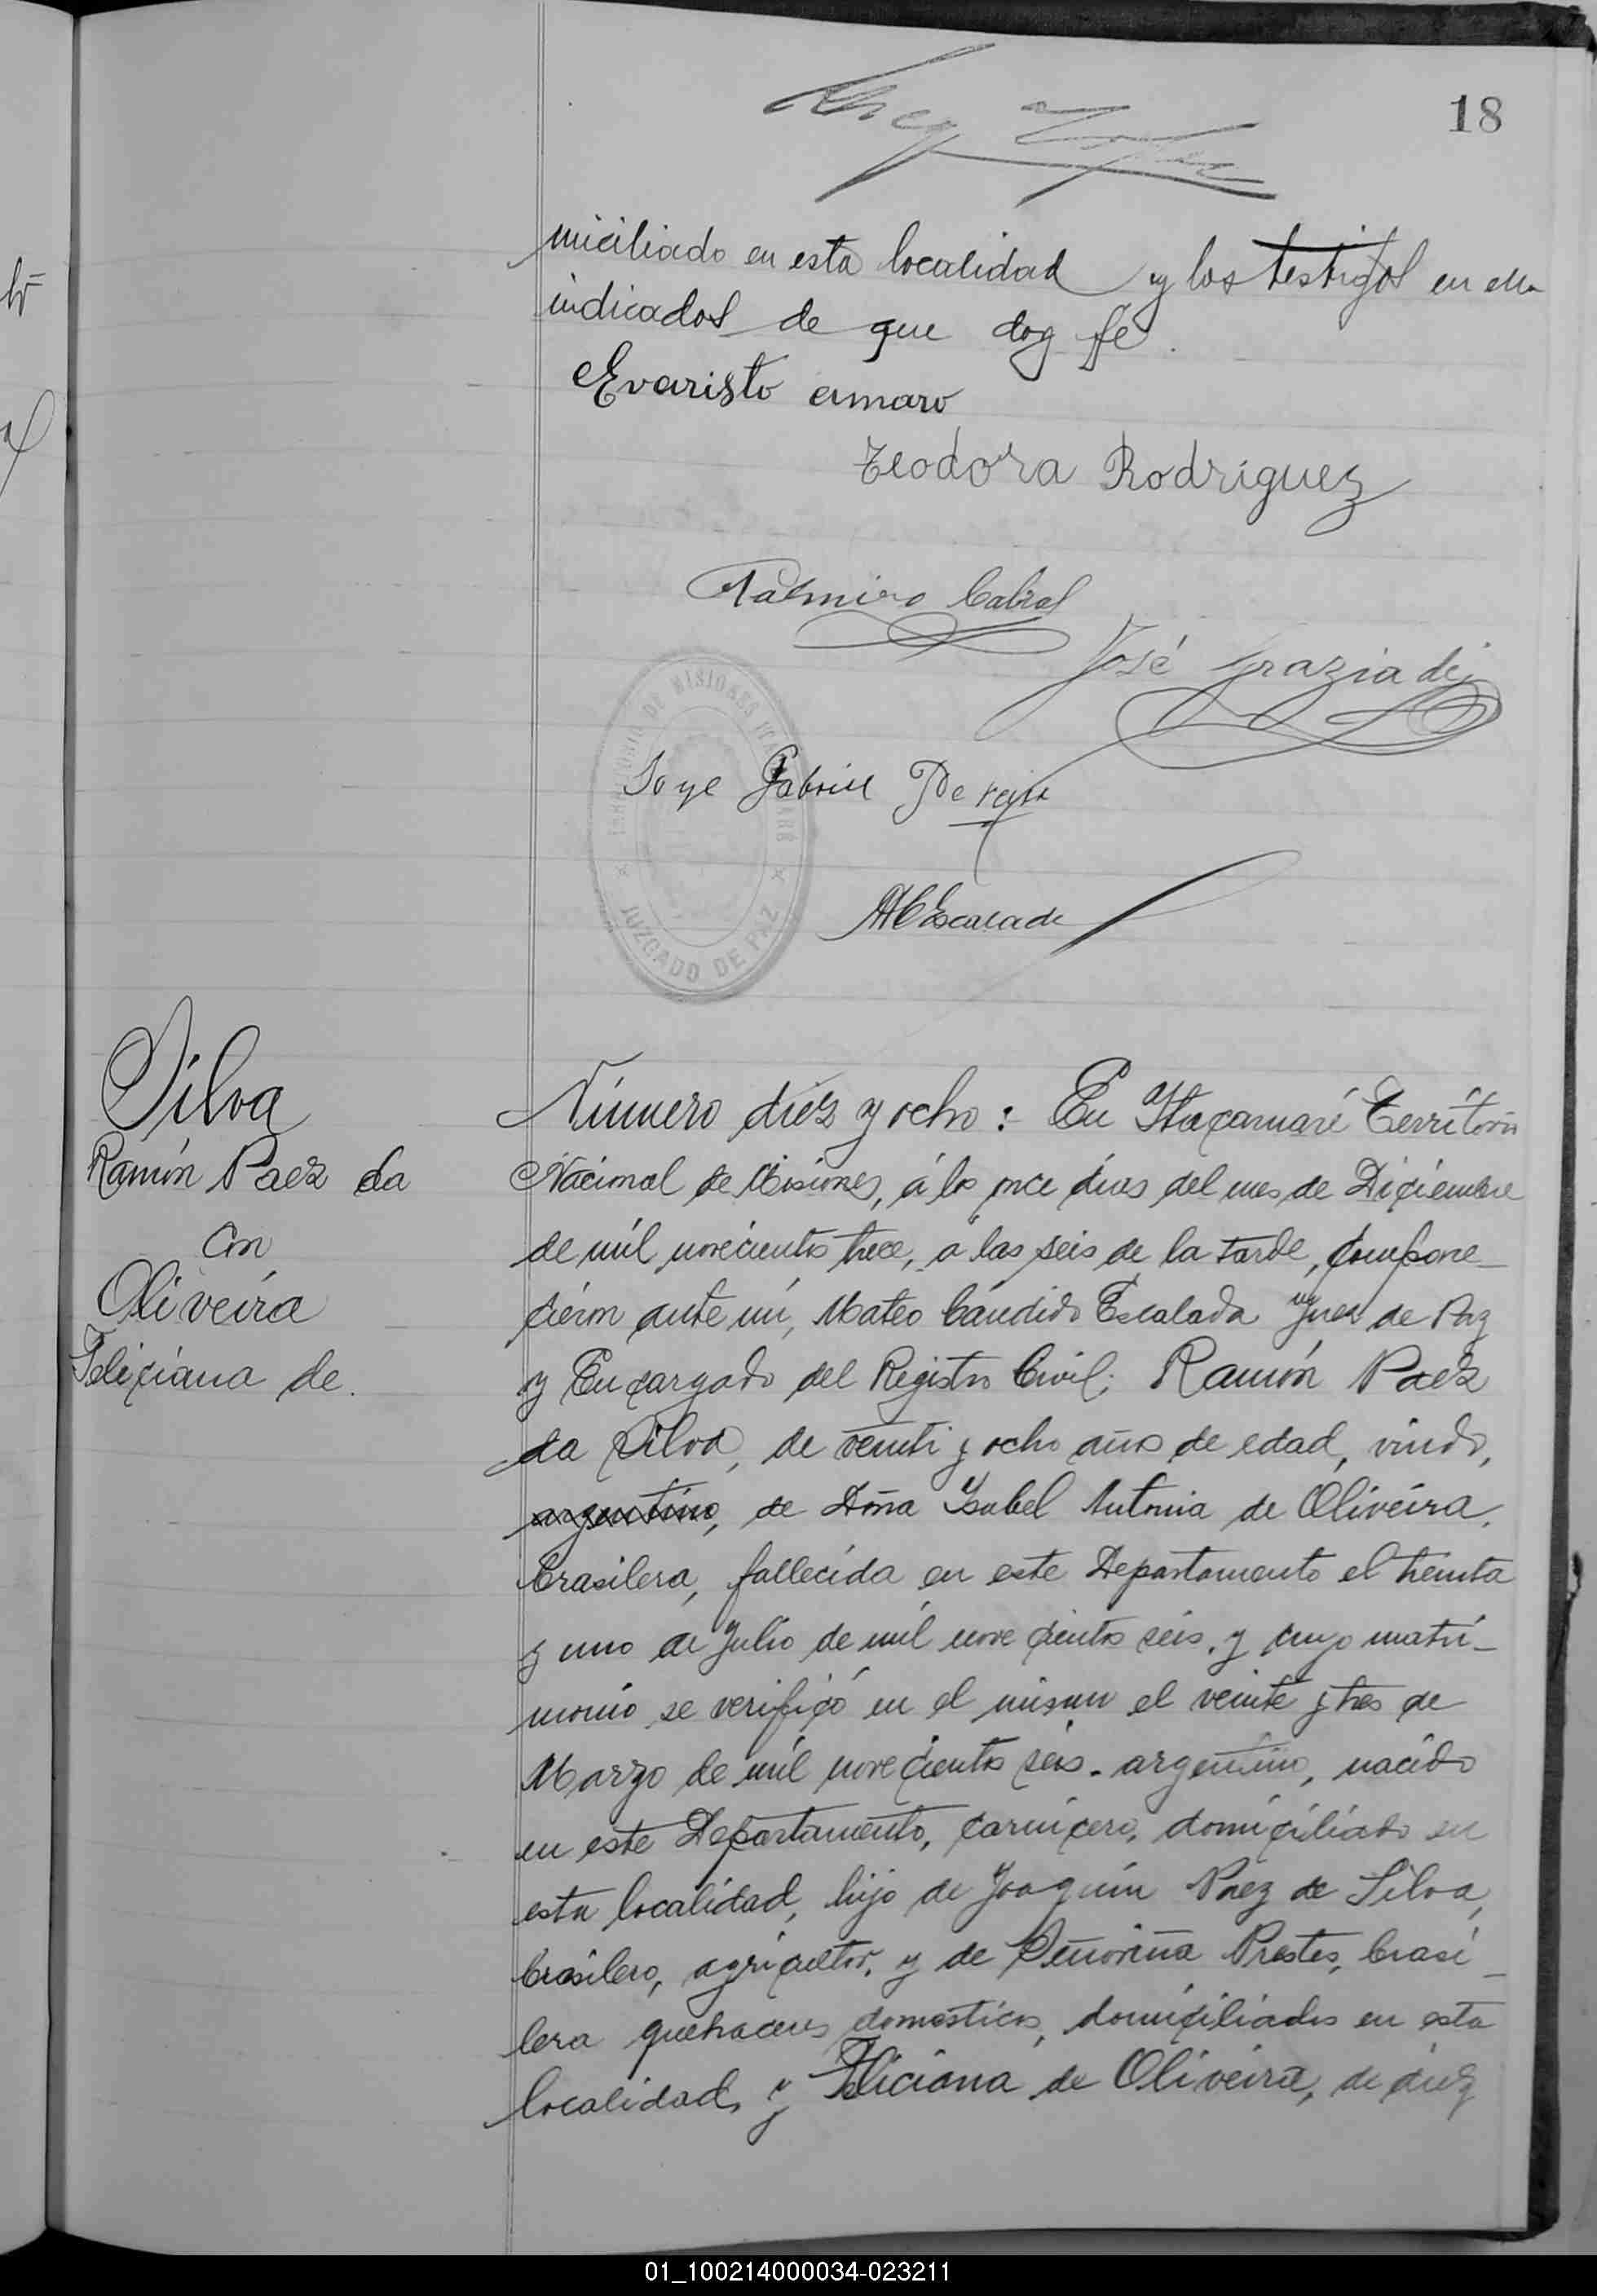 18
miciliado en esta localidad y los testigos en ella
indicados de que doy fé.
Evaristo amaro
Teodora Rodriguez
Palmiro Cabral
José Graziadei
Jorge Gabriel Pereira
MCEscalada
TERRITORIO DE MISIONES
JUZGADO DE PAZ
Silva
Ramón Paez da
con
Oliveira
Feliciana de.
Número diez y ocho: En Itacaruaré Territorio
Nacional de Misiones, á los once dias del mes de Diciembre
de mil novecientos trece, á las seis de la tarde, compare-
cieron ante mi, Mateo Cándido Escalada Juez de Paz
y Encargado del Registro Civil; Ramón Paez
da Silva, de veinti y ocho años de edad, viudo,
argentino, de Doña Isabel Antonia de Oliveira,
brasilera, fallecida en este Departamento el treinta
y uno de Julio de mil novecientos seis, y cuyo matri-
monio se verificó en el mismo el veinte y tres de
Marzo de mil novecientos seis. argentino, nacido
en este Departamento, carnicero, domiciliado en
esta localidad, hijo de Joaquín Paez de Silva,
brasilero, agricultor, y de Prestes, brasi-
lera quehaceres domesticos, domiciliados en esta
localidad, y Feliciana de Oliveira, de diez
01_100214000034-023211